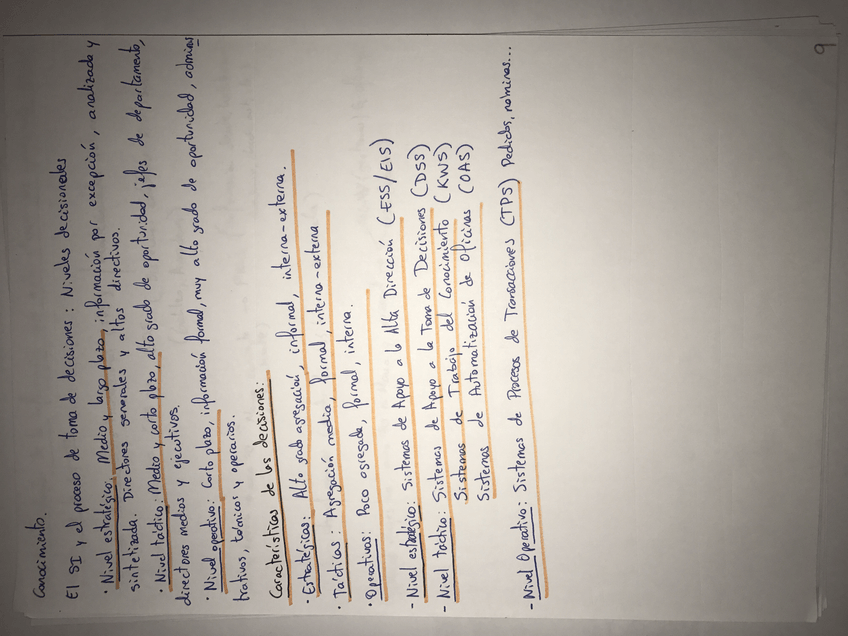 Conocimiento.
El SI y el proceso de toma de decisiones: Niveles decisionales
· Nivel estratégico: Medio y largo plazo, información por excepción, analizada y
sintetizada. Directores generales y altos directivos.
· Nivel táctico: Medio y corto plazo, alto grado de oportunidad, jefes de departamento,
directores medios y ejecutivos.
· Nivel operativo: Corto plazo, información formal, muy alto grado de oportunidad, adminis
trativos, técnicos y operarios.
Características de las decisiones:
· Estratégicas: Alto grado agregación, informal, interna-externa.
· Tácticas: Agregación media, formal, interna-externa
· Operativas: Poco agregada, formal, interna.
- Nivel estratégico: Sistemas de Apoyo a la Alta Dirección (ESS/EIS)
- Nivel táctico: Sistemas de Apoyo a la Toma de Decisiones (DSS)
Sistemas de Trabajo del Conocimiento (KWS)
Sistemas de Automatización de Oficinas (OAS)
- Nivel Operativo: Sistemas de Procesos de Transacciones (TPS) Pedidos, nóminas...
9